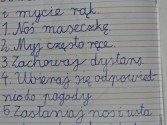 i mycie rąk.
1. Noś maseczkę.
2. Myj często ręce
3. Zachowaj dystans
4. Ubieraj się odpowied
nio do pogody.
5. Zasłaniaj nos i usta